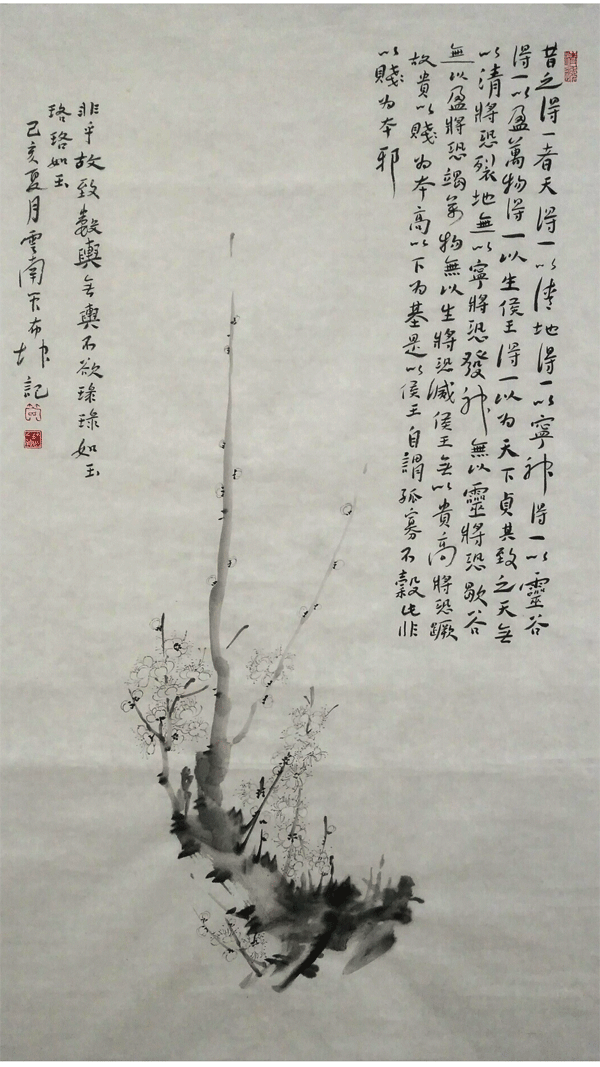 昔之得一者天得一以清地得一以寧神得一以靈谷
得一以盈萬物得一以生侯王得一以为天下貞其致之天无
以清將恐裂地無以寧將恐發神無以靈將恐歇谷
無以盈將恐竭萬物無以生將恐滅侯王无以貴高將恐蹶
故貴以賤为本高以下为基是以侯王自謂孤寡不穀此非
以賤为本邪
非乎故致數輿无輿不欲琭琭如玉
珞珞如玉
己亥夏月雲南布坤記